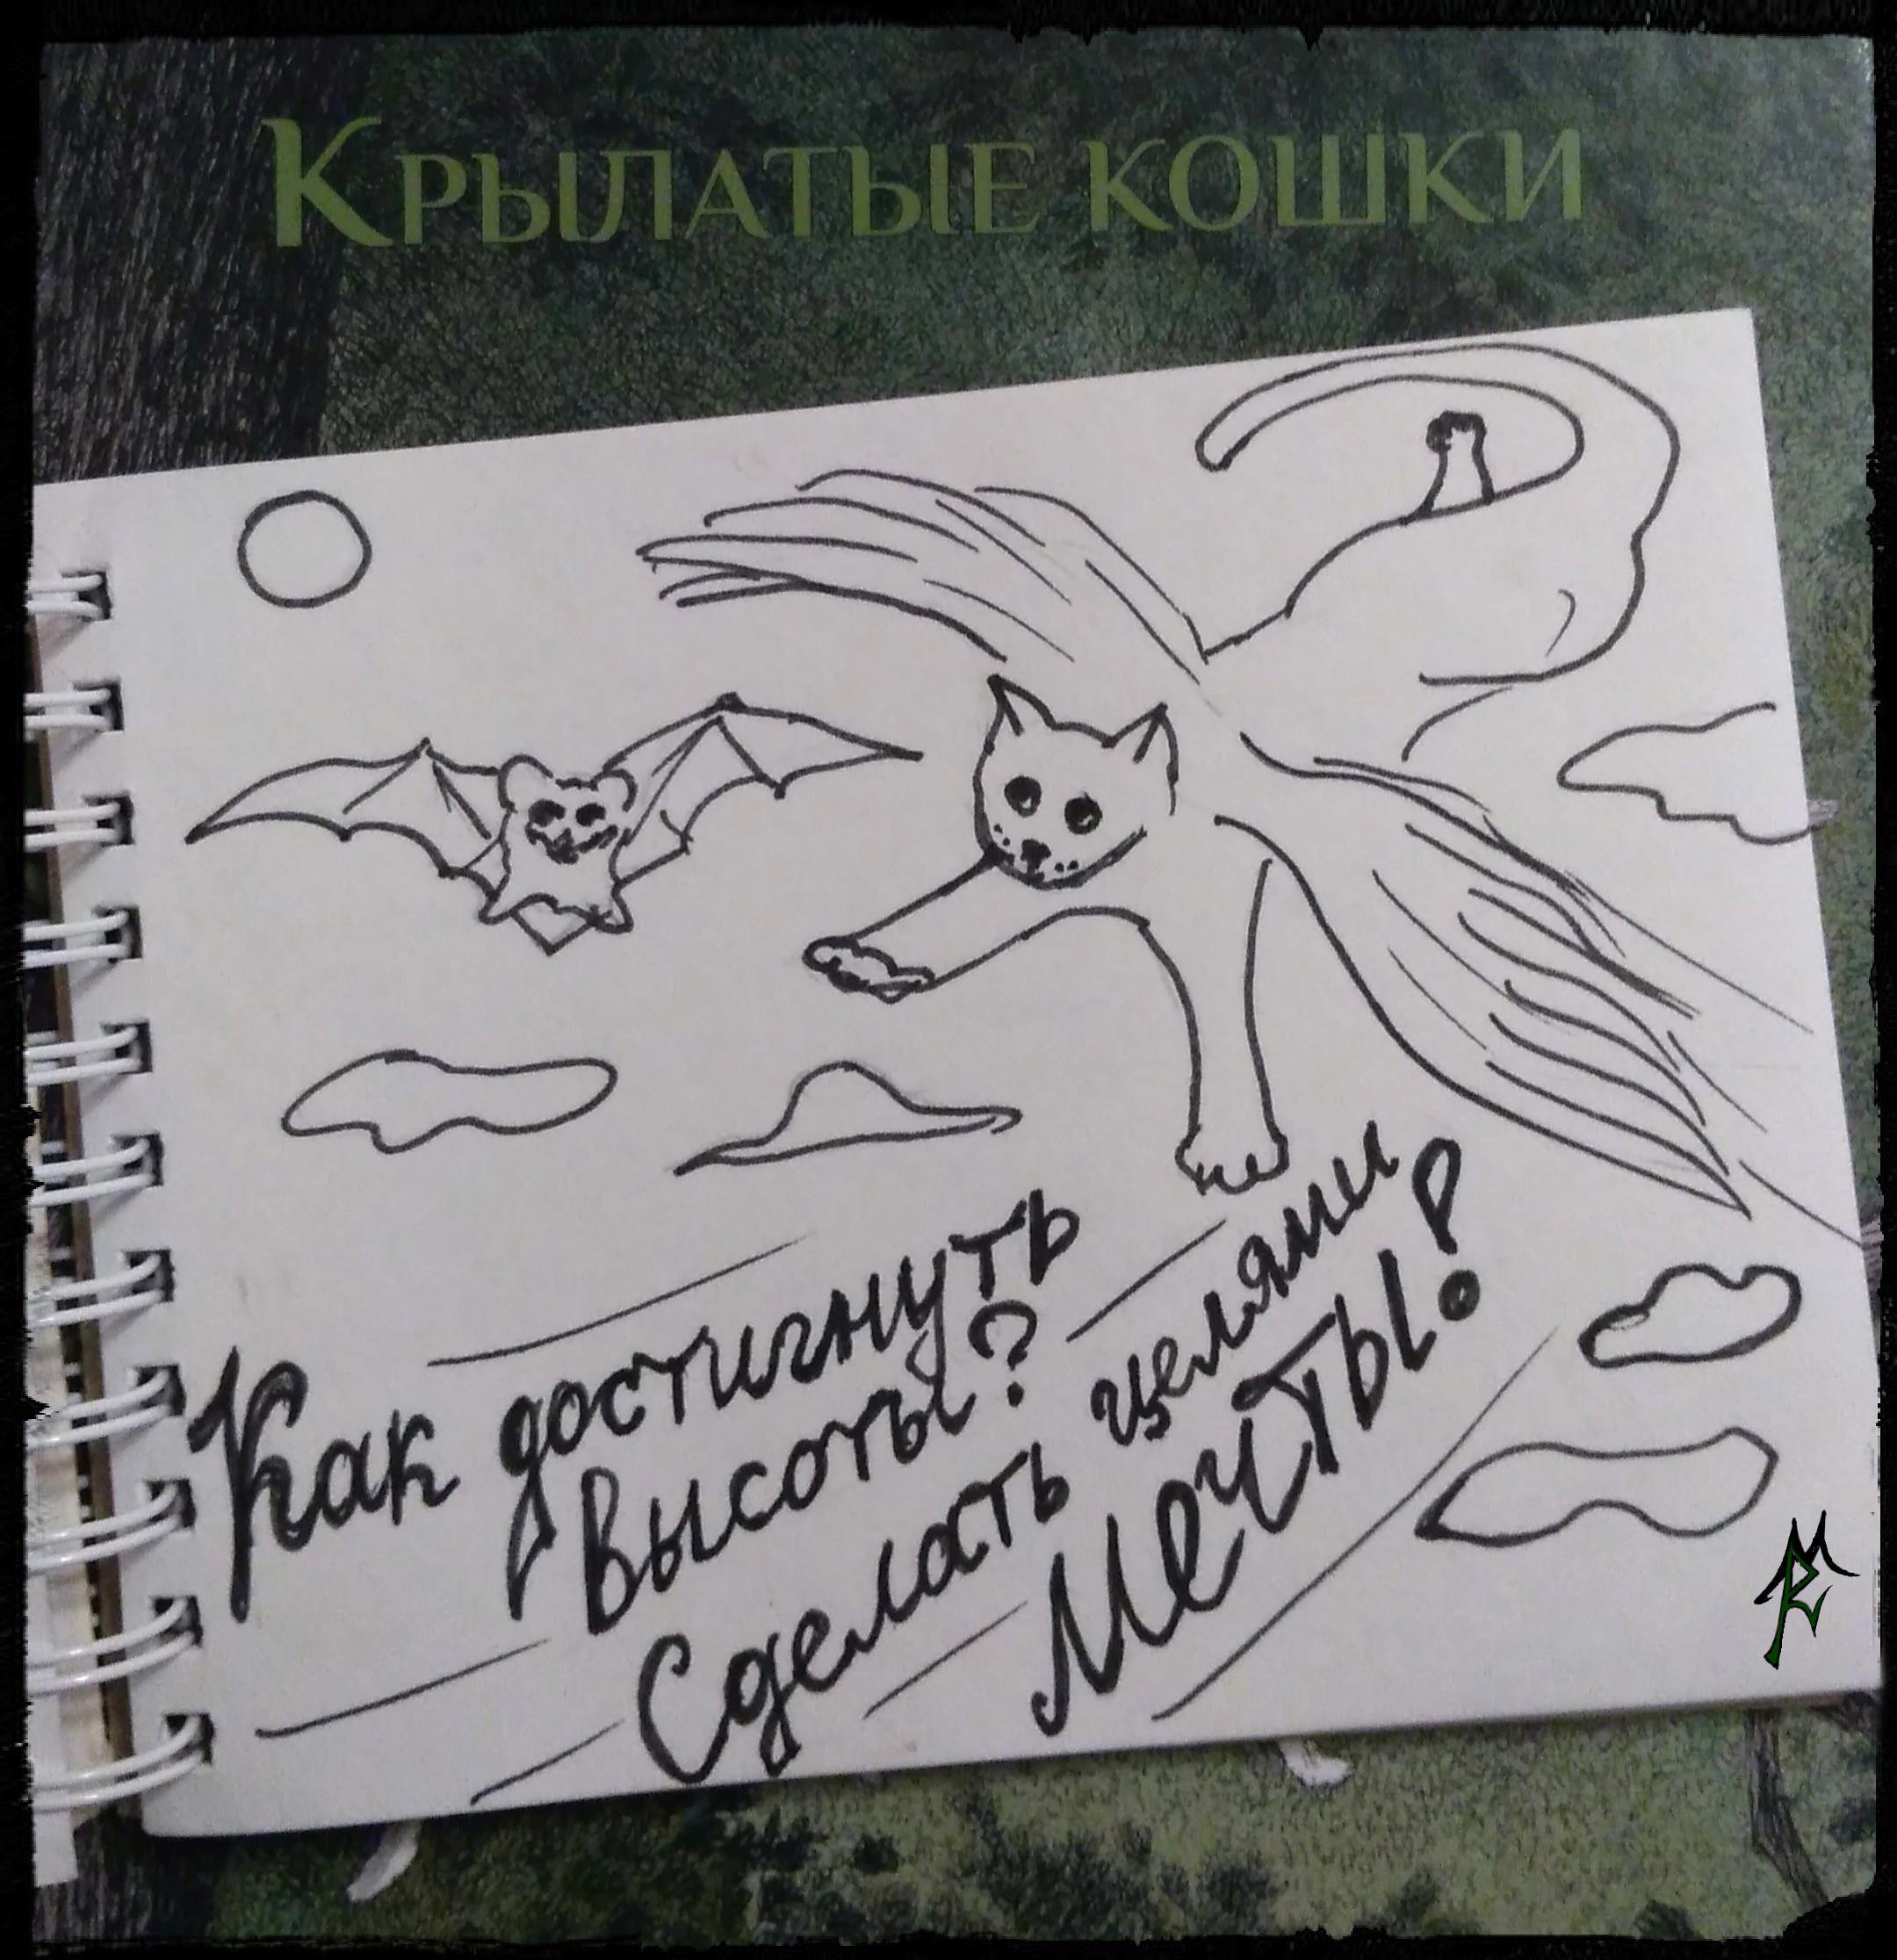 Крылатые кошки
Как достигнуть
высоты?
Сделать целями
Мечты!